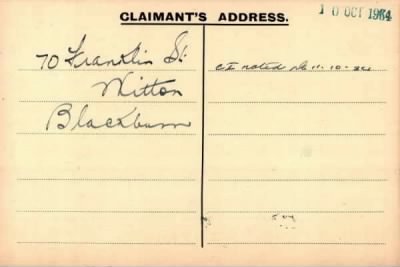 CLAIMANT'S ADDRESS.
10 OCT 1964
70 Franklin St.
Witton
Blackburn
CI noted
11-10-64